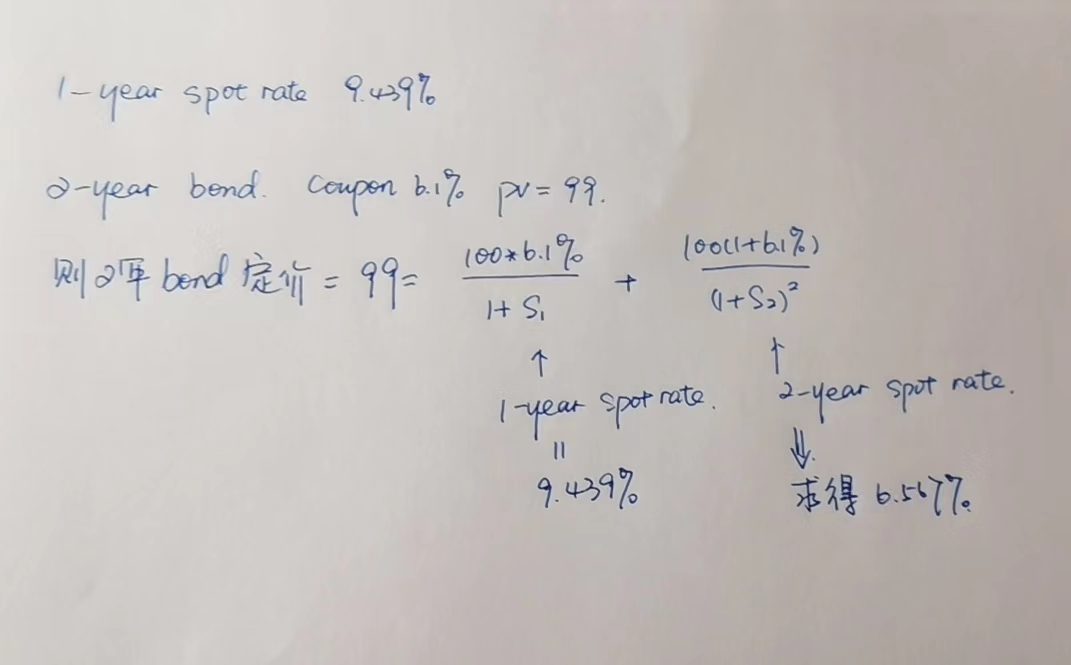 1-year spot rate 9.439%
2-year bond. Coupon 6.1% pv = 99.
则2年 bond 定价 = 99 = 100*6.1% / 1+S₁ + 100(1+6.1%) / (1+S₂)²
↑ ↑
1-year spot rate. 2-year spot rate.
|| ⇓
9.439% 求得 6.567%